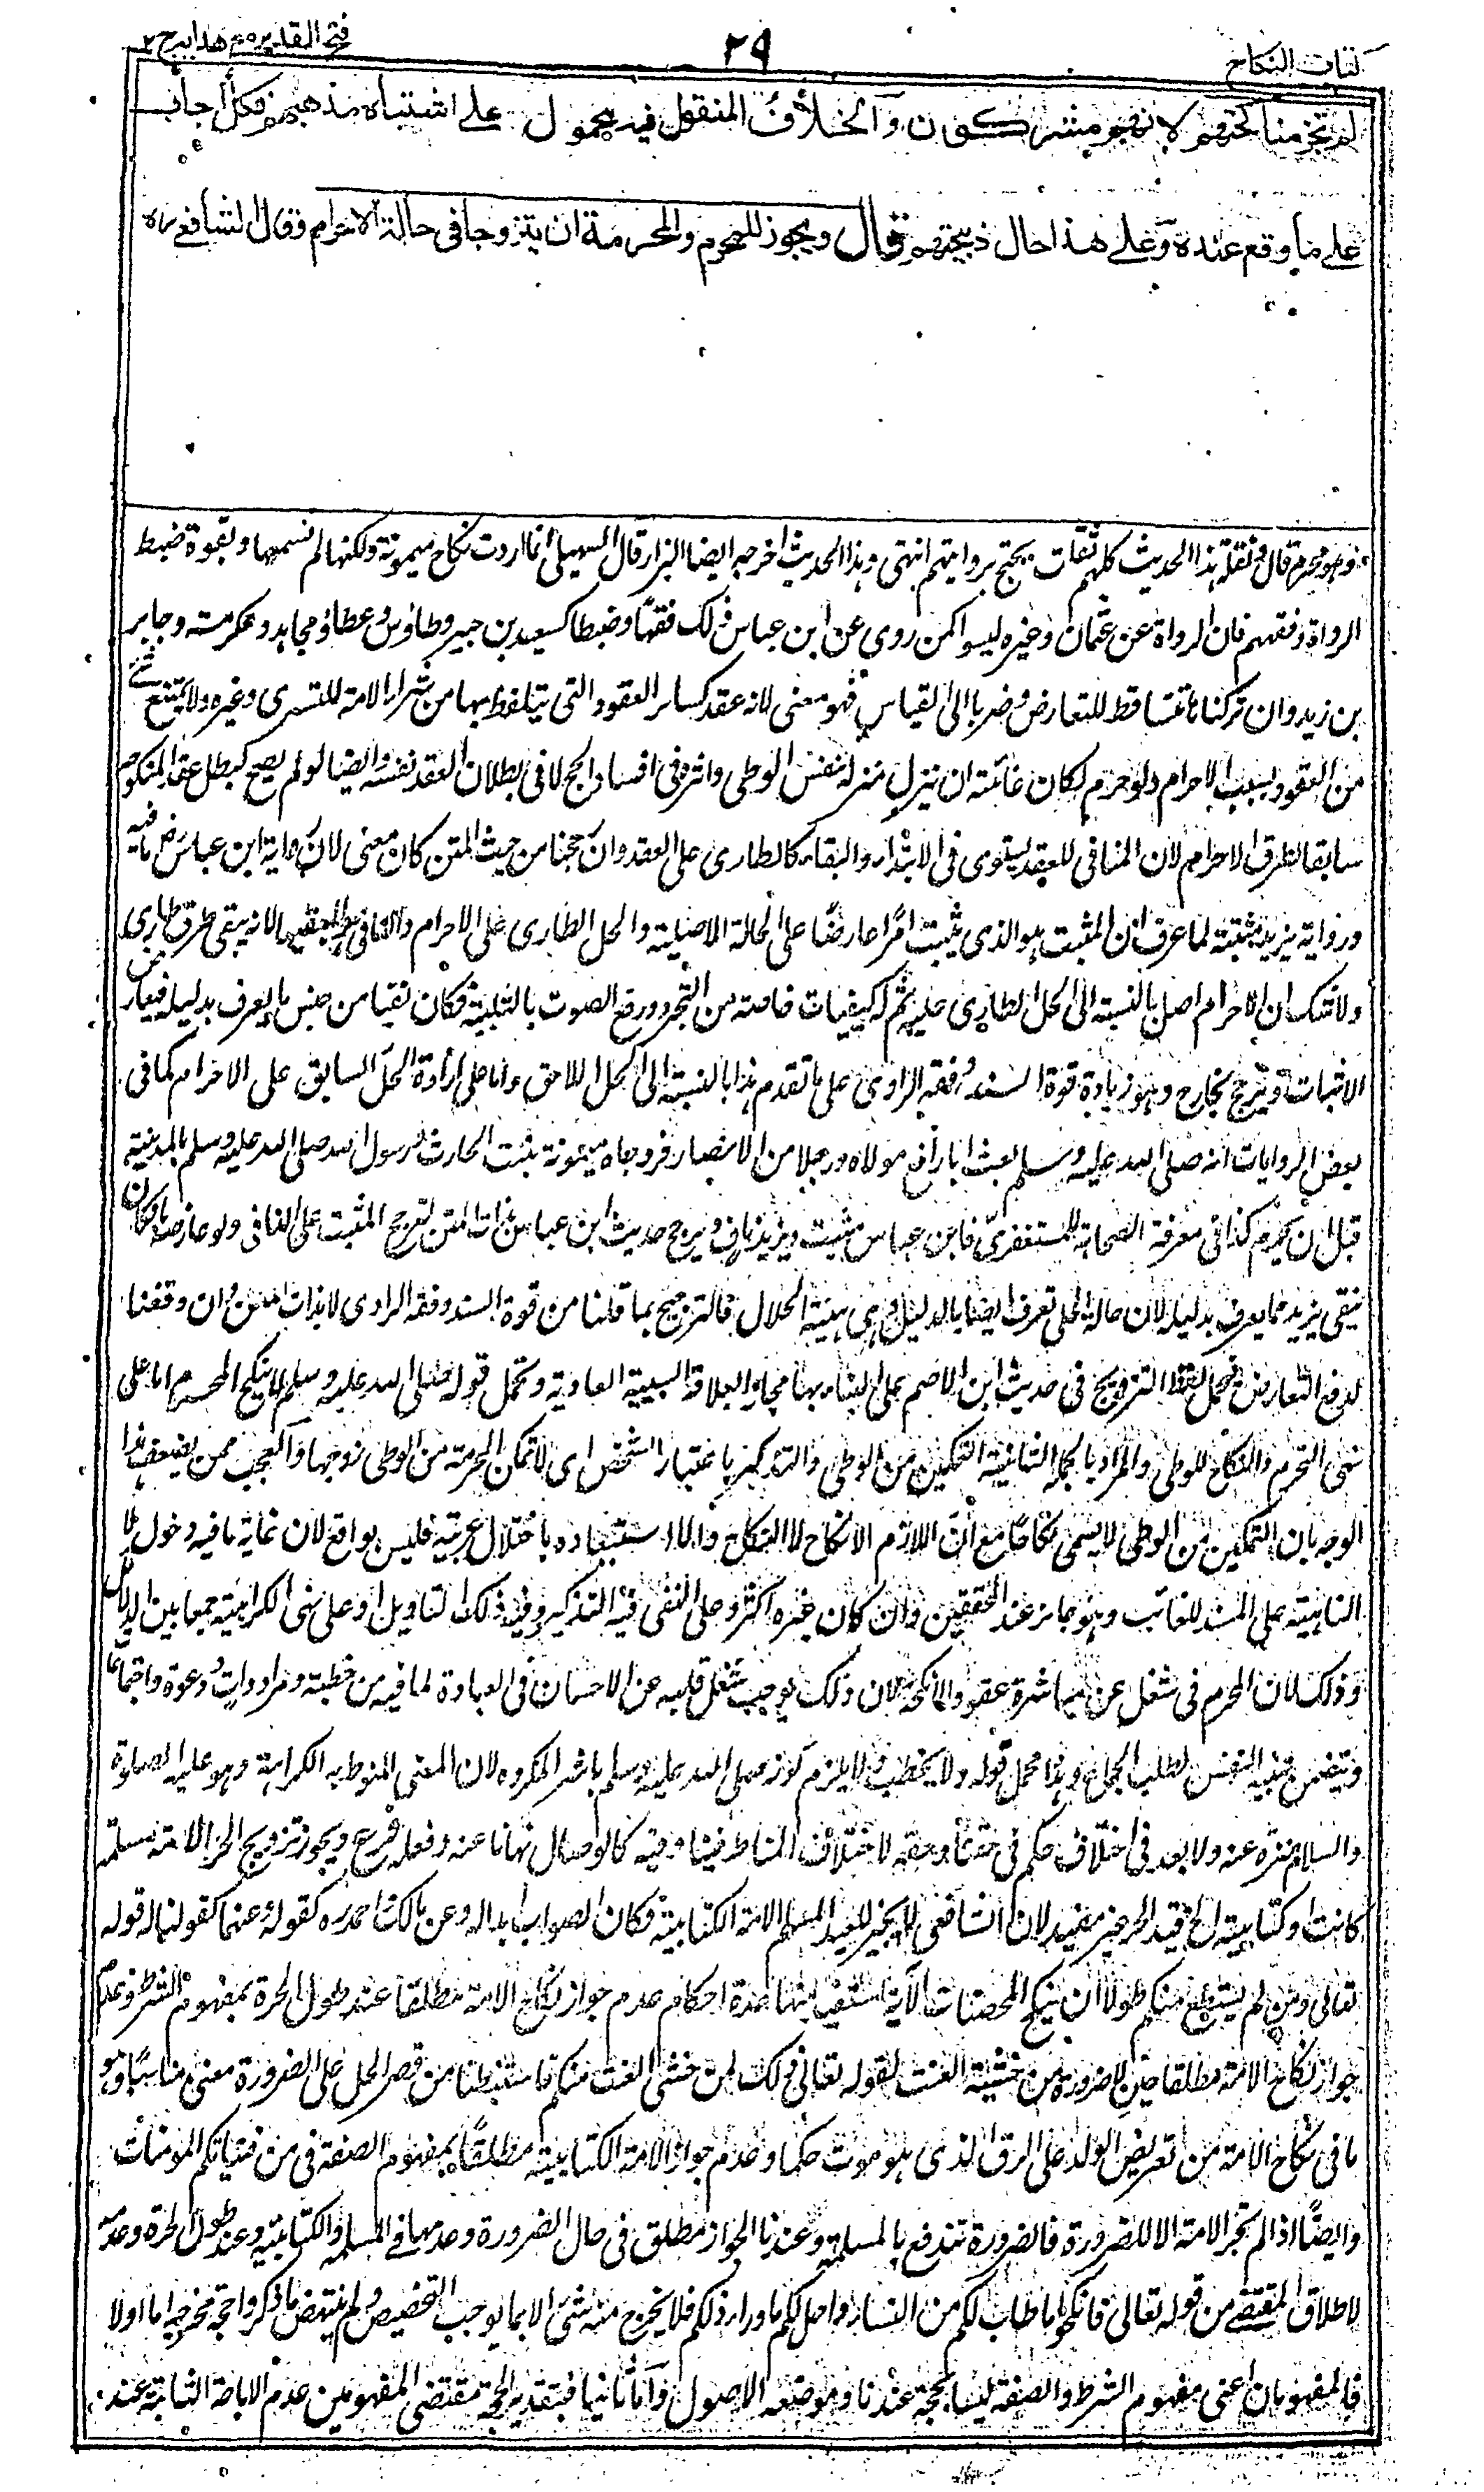 كتاب النكاح
٢٩
فتح القدير مع هدايه ج ٢
لم تجز مناكحتهم لانهم مشركون والخلاف المنقول فيه محمول على اشتباه مذهبهم فكل اجاب
على ما وقع عنده وعلى هذا حال ذبيحتهم قال ويجوز للمحرم والمحرمة ان يتزوجا في حالة الاحرام وقال الشافعي ره
وهو محرم قال ونقلة هذا الحديث كلهم ثقات يحتج بروايتهم انتهى وهذا الحديث اخرجه ايضا البزار قال السهيلي انما اردت نكاح ميمونة ولكنها لم نسمها وبقوة ضبط
الرواة وفقههم فان الرواة عن عثمان وغيره ليسوا كمن روى عن ابن عباس ذلك فقها وضبطا كسعيد بن جبير وطاؤس وعطاء ومجاهد وعكرمة وجابر
بن زيد وان تركناها تتساقط للتعارض وضربا الى القياس فهو معنى لانه عقد كسائر العقود التي يتلفظ بها من شراء الامة للتسري وغيره ولا يمتنع شئ
من العقود بسبب الاحرام ولو حرم لكان غايته ان ينزل منزلة نفس الوطى واثره في افساد الحج لا في بطلان العقد نفسه وايضا لو لم يصح لبطل عقد المنكوحة
سابقا لطرو الاحرام لان المنافي للعقد يستوى في الابتداء والبقاء كالطارى على العقد وان رجحنا من حيث المتن كان معنى لان رواية ابن عباس رض نافية
ورواية يزيد مثبتة لما عرف ان المثبت هو الذي يثبت امرا عارضا على الحالة الاصلية والحل الطارى على الاحرام والنافي هو المبقيها لانه ينفى طرو طارى
ولا شك ان الاحرام اصل بالنسبة الى الحل الطارى عليه ثم له كيفيات خاصة من التجرد ورفع الصوت بالتلبية فكان نفيا من جنس ما يعرف بدليله فيعارض
الاثبات ويرجح بخارج وهو زيادة قوة السند وفقه الراوى على ما تقدم هذا بالنسبة الى الحل اللاحق واما على ارادة الحل السابق على الاحرام كما في
بعض الروايات انه صلى الله عليه وسلم بعث ابا رافع مولاه ورجلا من الانصار فزوجاه ميمونة بنت الحارث ورسول الله صلى الله عليه وسلم بالمدينة
قبل ان يحرم كذا في معرفة الصحابة للمستغفري فابن عباس مثبت ويزيد ناف ويرجح حديث ابن عباس بذات المتن لترجح المثبت على النافي ولو عارضه بان كان
نفى يزيد مما يعرف بدليله لان حالة الحل تعرف ايضا بالدليل وهي هيئة الحلال فالترجيح بما قلنا من قوة السند وفقه الراوى لا بذات المتن وان وقفنا
لدفع التعارض فيحمل لفظ التزويج في حديث ابن الاصم على البناء بها مجازا لعلاقة السببية العادية وتحمل قوله صلى الله عليه وسلم لا ينكح المحرم اما على
نهى التحريم والنكاح للوطى والمراد بالجملة الثانية التمكين من الوطى والتذكير باعتبار الشخص اى لا تمكن المحرمة من الوطى زوجها والعجب ممن يضعف هذا
الوجه بان التمكين من الوطى لا يسمى نكاحا مع ان اللازم الانكاح لا النكاح والا استبعاده باختلال عربيته فليس بواقع لان غاية ما فيه دخول لا
الناهية على المسند للغائب وهو جائز عند المحققين وان كان غيره اكثر وعلى النفى فيه التذكير وفيه ذلك التاويل او على نهى الكراهية جمعا بين الدلائل
وذلك لان المحرم في شغل عن مباشرة عقود الانكحة لان ذلك يوجب شغل قلبه عن الاحسان في العبادة لما فيه من خطبة ومراودات ودعوة واجتماعات
ويتضمن تنبيه النفس لطلب الجماع وهذا محمل قوله ولا يخطب ولا يلزم كونه صلى الله عليه وسلم باشر المكروه لان المعنى المنوط به الكراهة وهو عليه الصلوة
والسلام منزه عنه ولا بعد في اختلاف حكم في حقنا وحقه لاختلاف المناط فينا وفيه كالوصال نهانا عنه وفعله فرع ويجوز تزويج الحر الامة مسلمة
كانت او كتابية الخ قيد الحر غير مفيد لان الشافعي لا يجيز للعبد المسلم الامة الكتابية فكان الصواب ابداله وعن مالك واحمد ره كقوله وعنهما كقولنا له قوله
تعالى ومن لم يستطع منكم طولا ان ينكح المحصنات الآية استفيد منها عدة احكام عدم جواز نكاح الامة مطلقا عند طول الحرة بمفهوم الشرط وعدم
جواز نكاح الامة مطلقا حين لا ضرورة من خشية العنت لقوله تعالى ذلك لمن خشى العنت منكم فاستنبطنا من قصر الحل على الضرورة معنى مناسبا وهو
ما في نكاح الامة من تعريض الولد على الرق الذي هو موت حكما وعدم جواز الامة الكتابية مطلقا بمفهوم الصفة في من فتياتكم المؤمنات
وايضا اذا لم تجز الامة الا للضرورة فالضرورة تندفع بالمسلمة وعندنا الجواز مطلق في حال الضرورة وعدمها في المسلمة والكتابية وعند طول الحرة وعدمه
لاطلاق المقتضى من قوله تعالى فانكحوا ما طاب لكم من النساء واحل لكم ما وراء ذلكم فلا يخرج منه شئ الا بما يوجب التخصيص ولم ينتهض ما ذكروا حجة مخرجة اما اولا
فالمفهومان اعنى مفهوم الشرط والصفة ليسا بحجة عندنا وموضعه الاصول واما ثانيا فبتقدير الحجة مقتضى المفهومين عدم الاباحة الثابتة عند